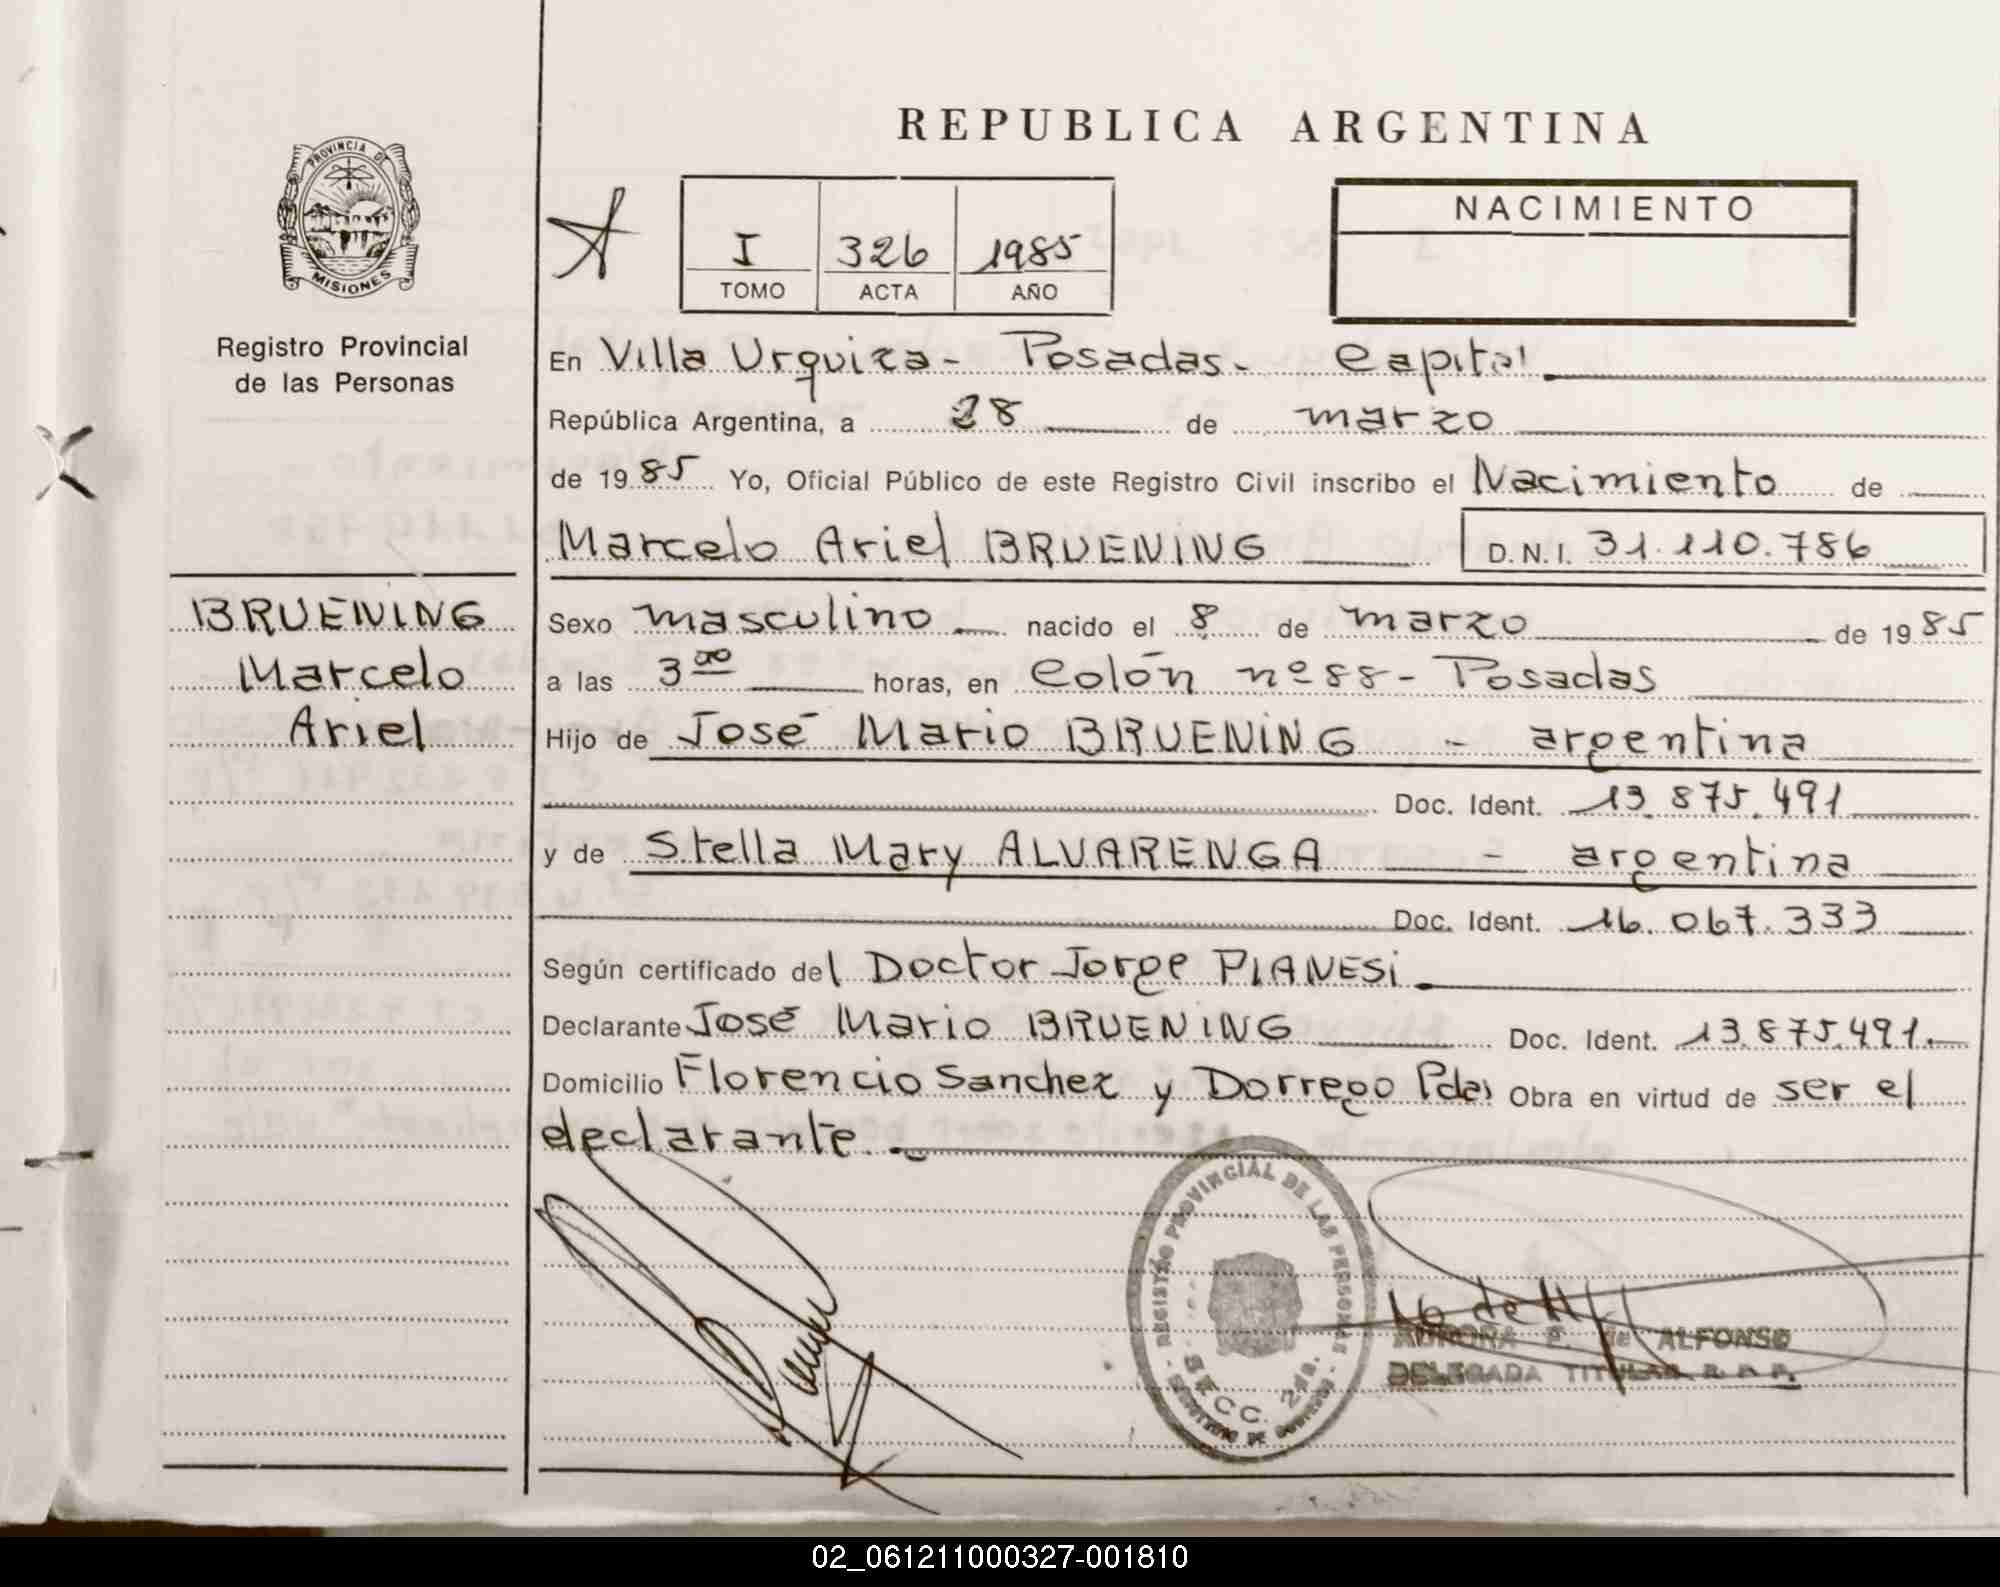 REPUBLICA ARGENTINA
PROVINCIA DE
MISIONES
Registro Provincial
de las Personas
I 326 1985
TOMO ACTA AÑO
NACIMIENTO
En Villa Urquiza - Posadas - Capital
República Argentina, a 28 de marzo
de 1985 Yo, Oficial Público de este Registro Civil inscribo el Nacimiento de
Marcelo Ariel BRUENING D.N.I. 31.110.786
BRUENING
Marcelo
Ariel
Sexo masculino nacido el 8 de marzo de 1985
a las 3 00 horas, en Colón nº 88 - Posadas
Hijo de José Mario BRUENING - argentina
Doc. Ident. 13.875.491
y de Stella Mary ALVARENGA - argentina
Doc. Ident. 16.067.333
Según certificado del Doctor Jorge PIANESI
Declarante José Mario BRUENING Doc. Ident. 13.875.491.
Domicilio Florencio Sanchez y Dorrego Pdas Obra en virtud de ser el
declarante.
REGISTRO PROVINCIAL DE LAS PERSONAS
SECC. 2da.
AURORA de ALFONSO
DELEGADA TITULAR R.P.P.
02_061211000327-001810